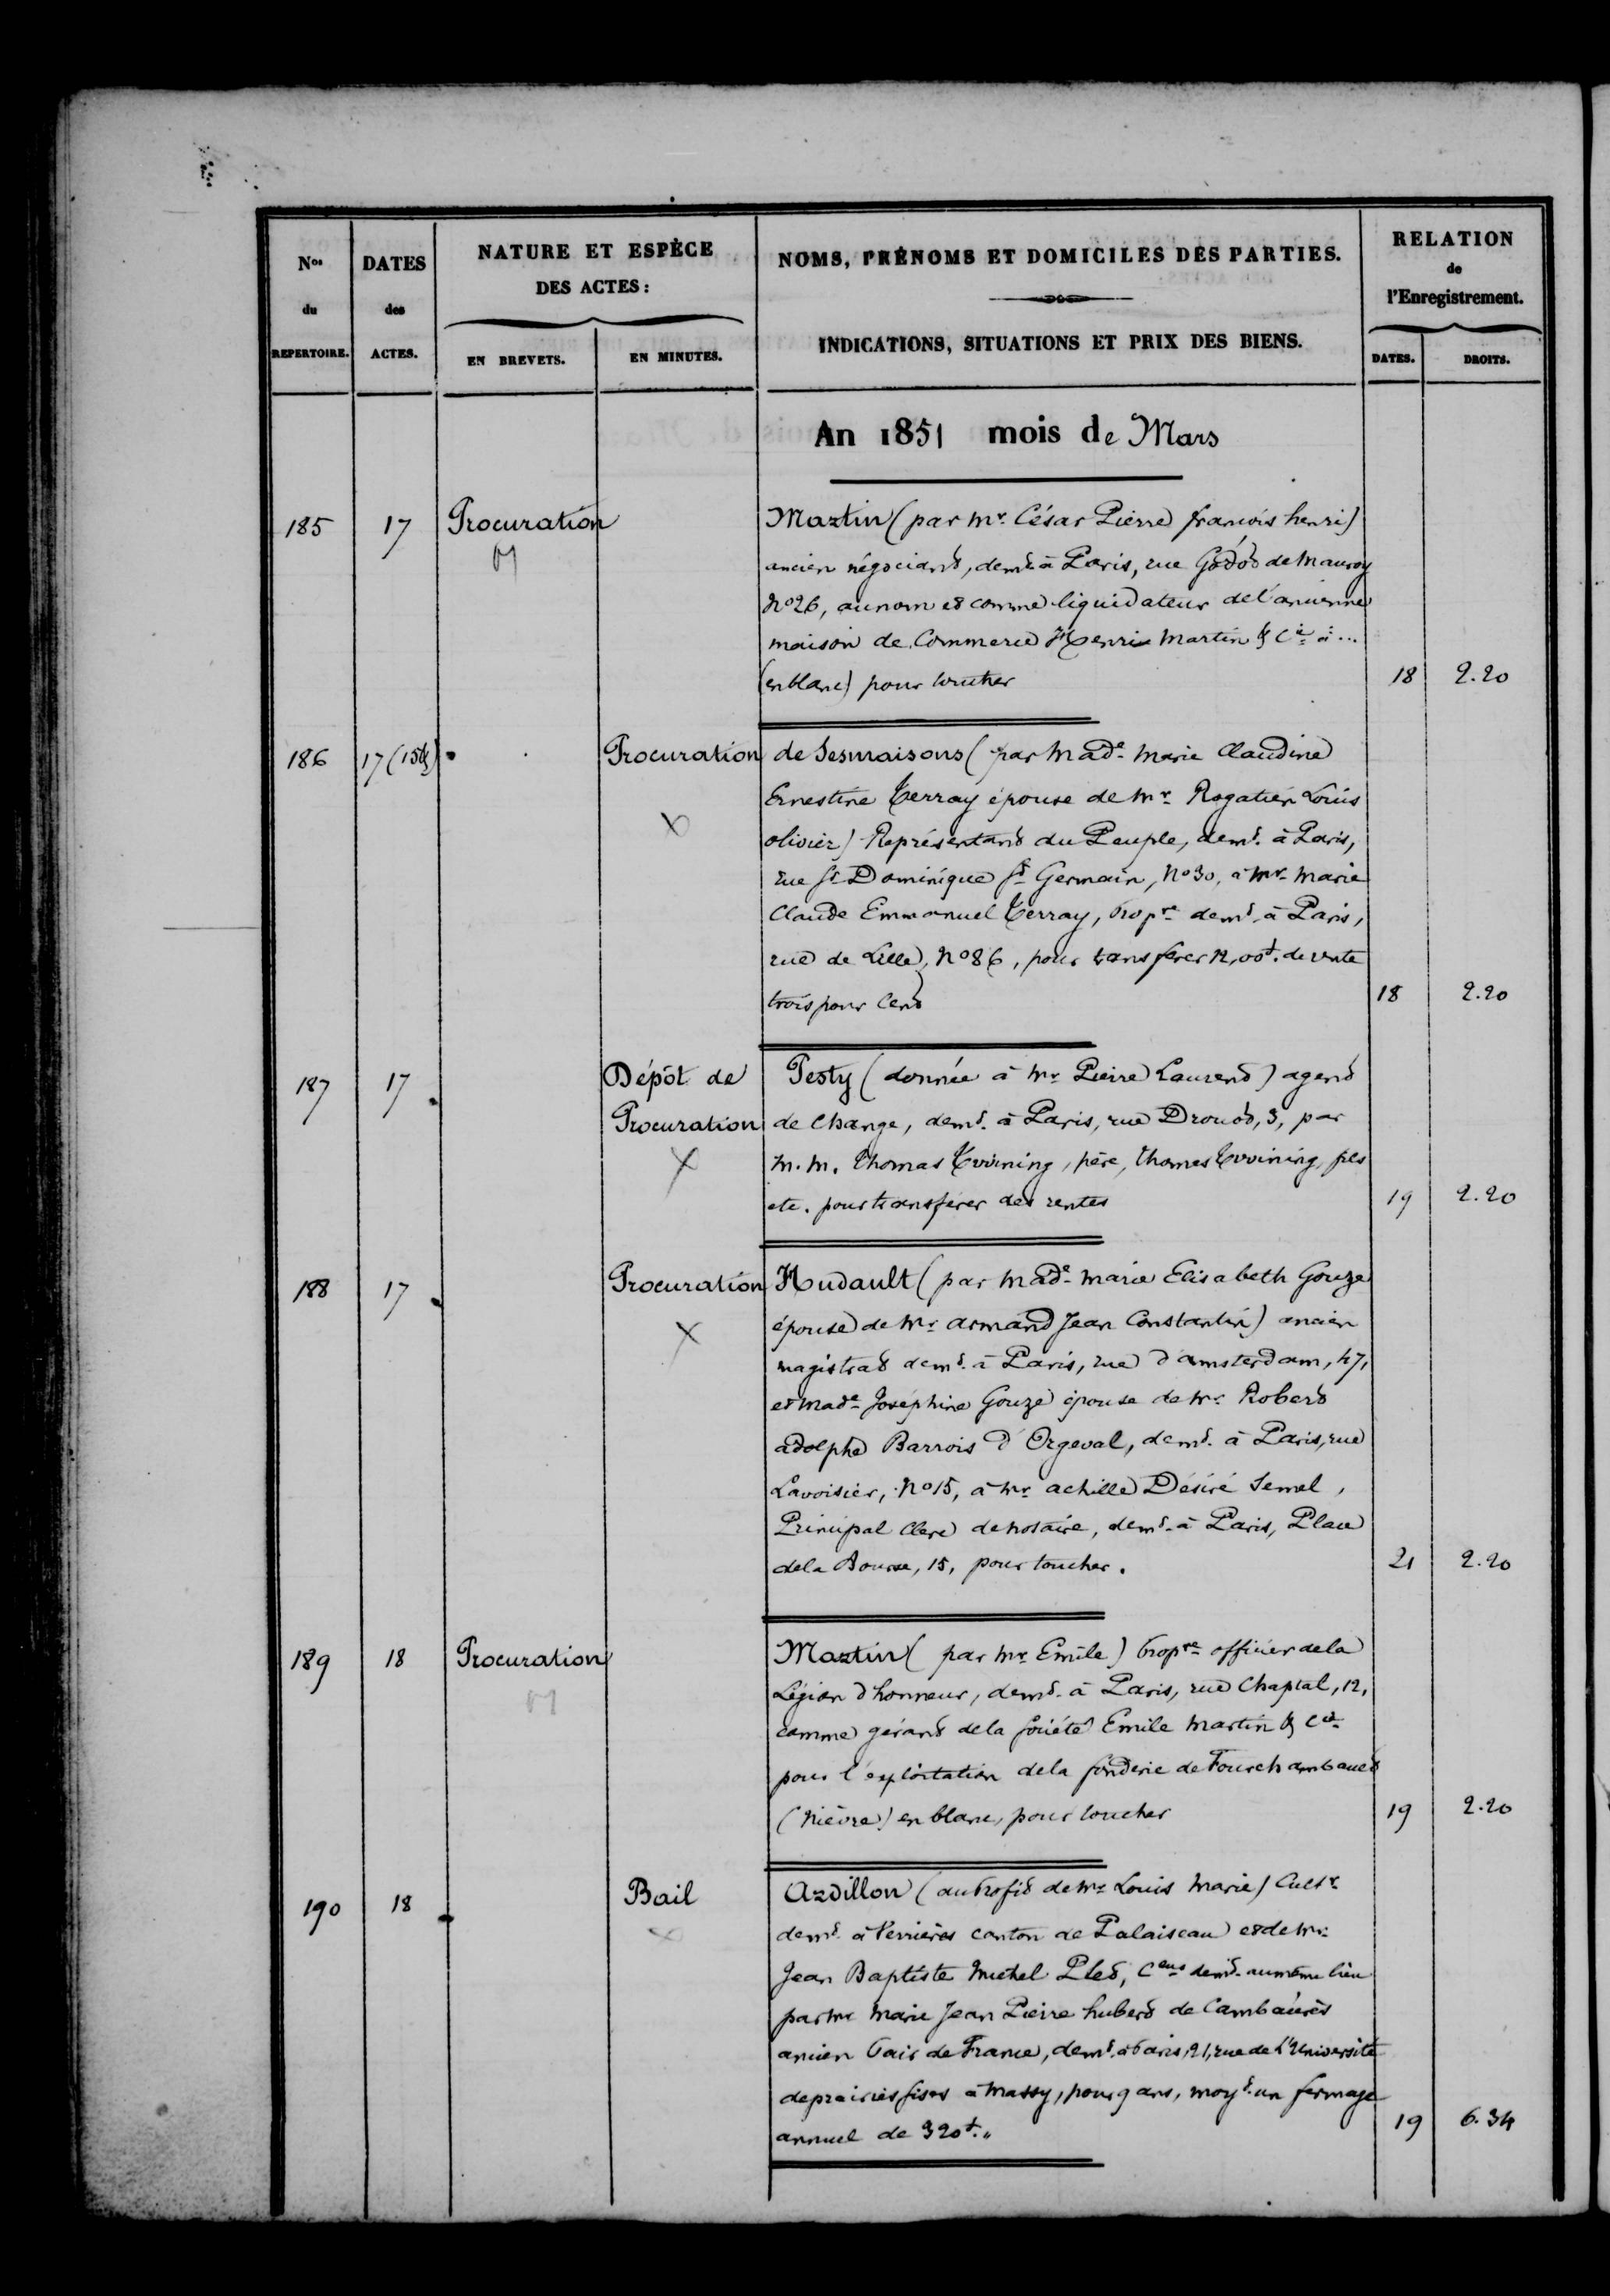 Nos du REPERTOIRE.
DATES des ACTES.
NATURE ET ESPÈCE DES ACTES:
EN BREVETS.
EN MINUTES.
NOMS, PRÉNOMS ET DOMICILES DES PARTIES.
INDICATIONS, SITUATIONS ET PRIX DES BIENS.
RELATION de l'Enregistrement.
DATES.
DROITS.
An 1851 mois de Mars
185 17 Procuration Martin (par Mr. César Pierre françois henri)
ancien négociant, demt à Paris, rue Godot de Mauroy
No 26, au nom et comme liquidateur de l'ancienne
maison de Commerce Henri Martin & Cie à ...
(en blanc) pour toucher 18 2.20
186 17 Procuration de Sesmaisons (par Made Marie Claudine
Ernestine Terray épouse de Mr Rogatien Louis
olivier) Représentant du Peuple, demt. à Paris,
rue St Dominique St Germain, No 30, à Mr Marie
Claude Emmanuel Terray, propre demt à Paris,
rue de Lille, No 86, pour transférer de rente
trois pour Cent 18 2.20
187 17 Dépôt de Procuration Testy (donnée à Mr Pierre Laurent) agent
de Change, demt. à Paris, rue Drouot, 3, par
M.M. Thomas Twining, père, Thomas Twining fils
etc. pour transférer des rentes 19 2.20
188 17 Procuration Hudault (par Made Marie Elisabeth Gouze
épouse de Mr armand Jean Constantin) ancien
magistrat demt. à Paris, rue d'amsterdam, 47,
et Made Joséphine Gouze épouse de Mr Robert
adolphe Barrois d'Orgeval, demt. à Paris, rue
Lavoisier, No 15, à Mr achille Désiré Semel,
Principal Clerc de notaire, demt à Paris, Place
de la Bourse, 15, pour toucher. 21 2.20
189 18 Procuration Martin (par Mr Emile) propre officier de la
Légion d'honneur, demt. à Paris, rue Chaptal, 12,
comme gérant de la Société Emile Martin & Cie
pour l'exploitation de la fonderie de Fourchambault
(Nièvre) en blanc, pour toucher 19 2.20
190 18 Bail Ardillon (au profit de Mr Louis Marie) Cultr
demt à Verrières canton de Palaiseau et de Mr
Jean Baptiste Michel Plet, demt au même lieu
par Mr Marie Jean Pierre hubert de Cambacérès
ancien Pair de France, demt. à Paris, 21, rue de l'Université
de prairies sises à Massy, pour 9 ans, moyt. un fermage
annuel de 320f. 19 6.34